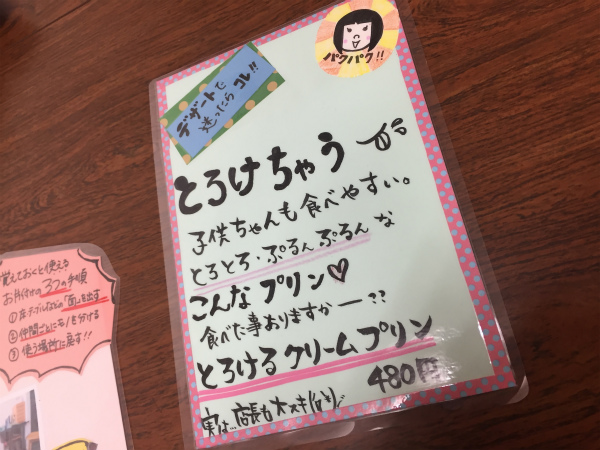 パクパク!!
デザートで
迷ったら コレ!!
とろけちゃう
子供ちゃんも食べやすい。
とろとろ・ぷるんぷるんな
こんなプリン♡
食べた事ありますかー??
とろけるクリームプリン
480円
実は…店長も大スキ
覚えておくと使える
お片付けの3つの手順
①床・テーブルなどの「面」を出す
②仲間ごとにモノを分ける
③使う場所に戻す!!